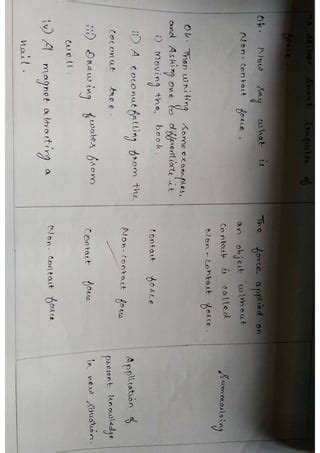 force
Ok. Now say what is
Non-contact force.
The force applied on
an object without
contact is called
Non-contact force.
Summarising
Ok. Then writing some examples,
and Asking one to differentiate it
i) Moving the book.
contact force
ii) A coconut falling from the
coconut tree.
Non-contact force
iii) Drawing water from
well.
Contact force
iv) A magnet attracting a
nail.
Non-contact force
Application of
present knowledge
in new situation.